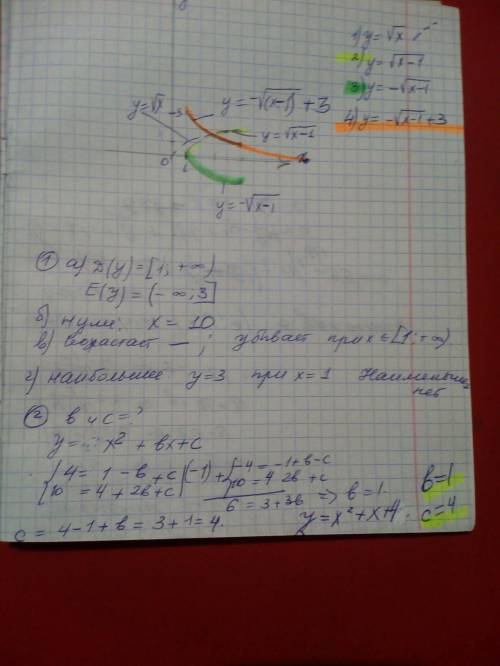 1) y = √x
2) y = √x-1
3) y = -√x-1
4) y = -√x-1 + 3
y = √x
3
y = -√(x-1) + 3
y = √x-1
0
1
x
y = -√x-1
① а) D(y) = [1; +∞)
E(y) = (-∞; 3]
б) нули: x = 10
в) возрастает — ; убывает при x ∈ [1; +∞)
г) наибольшее y=3 при x=1 Наименьшее
нет
② в и с = ?
y = x² + вx + c
{ 4 = 1 - в + c |(-1) + { -4 = -1 + в - c
10 = 4 + 2в + c 10 = 4 2в + c
6 = 3 + 3в => в = 1.
в = 1
c = 4 - 1 + в = 3 + 1 = 4.
y = x² + x + 4.
c = 4